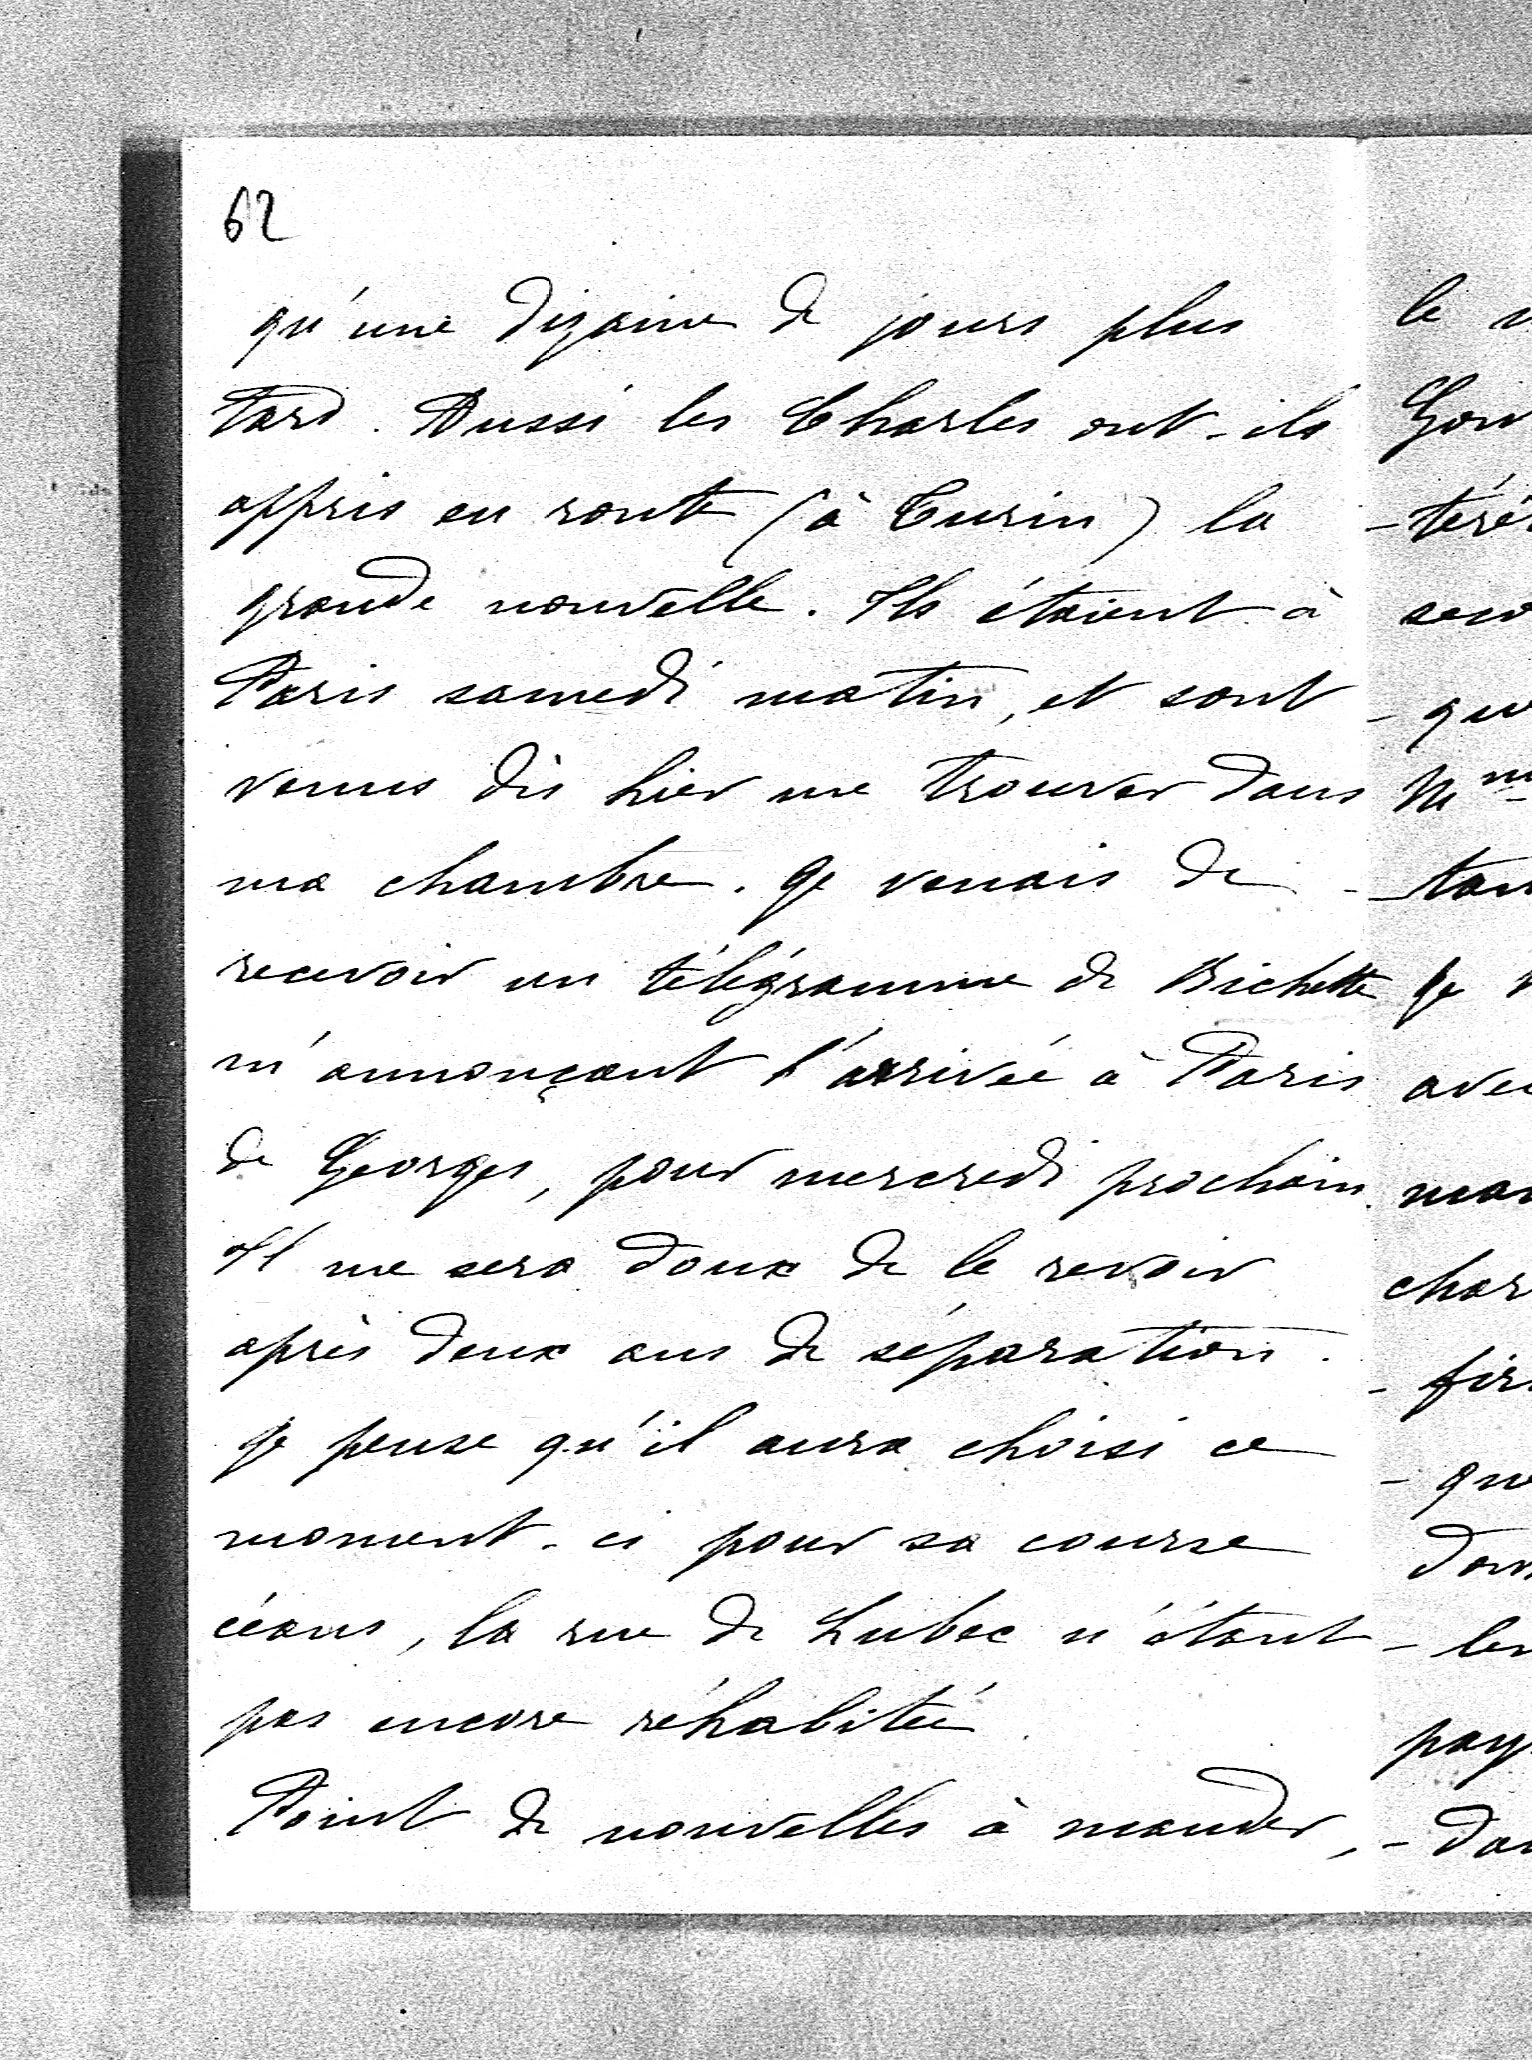 62
qu'une dizaine de jours plus
tard. Aussi les Charles ont-ils
appris en route (à Turin) la
grande nouvelle. Ils étaient à
Paris samedi matin, et sont
venus dis hier me trouver dans
ma chambre. Je venais de
recevoir un télégramme de Bichette
m'annonçant l'arrivée à Paris
de Georges, pour mercredi prochain.
Il me sera doux de le revoir
après deux ans de séparation.
Je pense qu'il aura choisi ce
moment-ci pour sa course
céans, la rue de Lubec n'étant
pas encore réhabitée.
Point de nouvelles à mander,
le
-téré
-que
Mme
Je
avec
char
-que
-les
pay